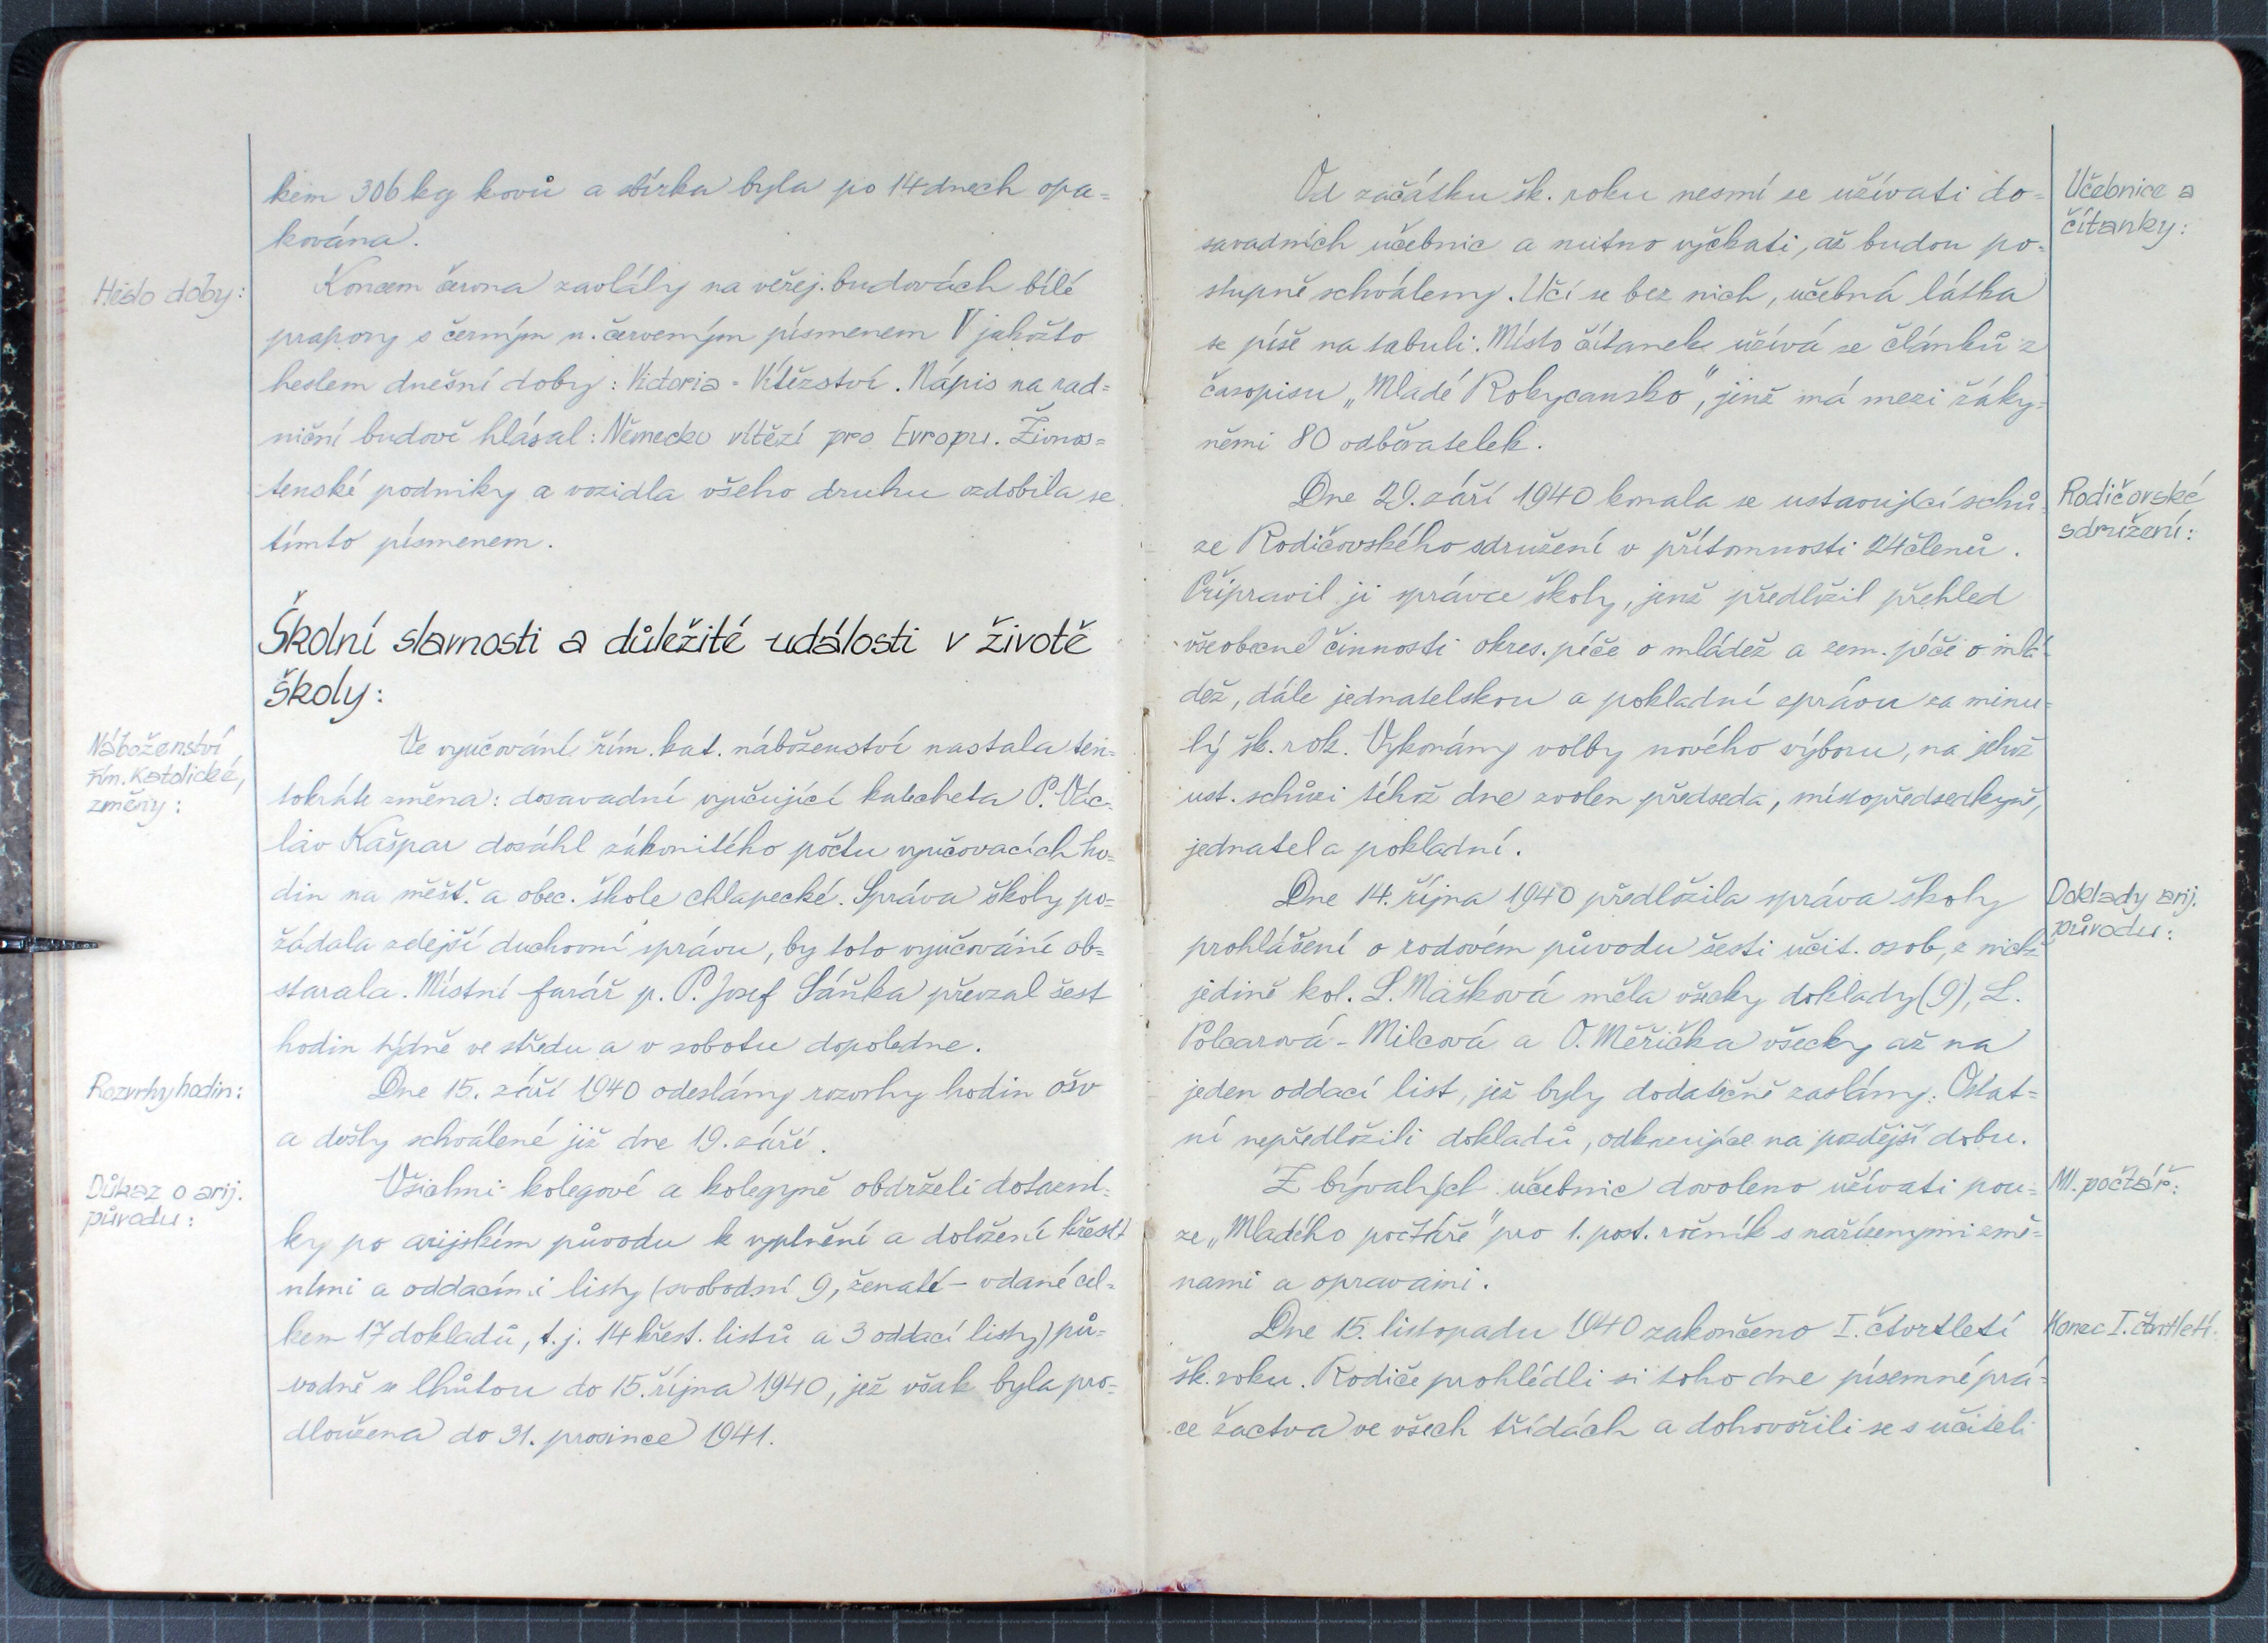 kem 306 kg kovů a sbírka byla po 14 dnech opa=
kována.
Heslo doby:
Koncem června zavlály na veřej. budovách bílé
prapory s černým n. červeným písmenem V jakožto
heslem dnešní doby: Victoria = Vítězství. Nápis na rad=
niční budově hlásal: Německo vítězí pro Evropu. Živnos=
tenské podniky a vozidla všeho druhu ozdobila se
tímto písmenem.
Školní slavnosti a důležité události v životě
školy:
Náboženství
řím. katolické,
změny:
Ve vyučování řím. kat. náboženství nastala ten=
tokráte změna: dosavadní vyučující katecheta P. Vác=
lav Kašpar dosáhl zákonitého počtu vyučovacích ho=
din na měšť. a obec. škole chlapecké. Správa školy po=
žádala zdejší duchovní správu, by toto vyučování ob=
starala. Místní farář p. P. Josef Sáňka převzal šest
hodin týdně ve středu a v sobotu dopoledne.
Rozvrhy hodin:
Dne 15. září 1940 odeslány rozvrhy hodin ošv
a došly schválené již dne 19. září.
Důkaz o arij.
původu:
Všichni kolegové a kolegyně obdrželi dotazní=
ky po arijském původu k vyplnění a doložení křest=
ními a oddacími listy (svobodní 9, ženatí - vdané cel=
kem 17 dokladů, t. j. 14 křest. listů a 3 oddací listy) pů=
vodně se lhůtou do 15. října 1940, jež však byla pro=
dloužena do 31. prosince 1941.
Učebnice a
čítanky:
Od začátku šk. roku nesmí se užívati do=
savadních učebnic a nutno vyčkati, až budou po=
stupně schváleny. Učí se bez nich, učebná látka
se píše na tabuli. Místo čítanek užívá se článků z
časopisu „Mladé Rokycansko", jenž má mezi žáky=
němi 80 odběratelek.
Rodičovské
sdružení:
Dne 29. září 1940 konala se ustavující schů=
ze Rodičovského sdružení v přítomnosti 24 členů.
Připravil ji správce školy, jenž předložil přehled
všeobecné činnosti okres. péče o mládež a zem. péče o mlá=
dež, dále jednatelskou a pokladní zprávu za minu=
lý šk. rok. Vykonány volby nového výboru, na jehož
ust. schůzi téhož dne zvolen předseda, místopředsedkyně,
jednatel a pokladní.
Doklady arij.
původu:
Dne 14. října 1940 předložila správa školy
prohlášení o rodovém původu šesti učit. osob, z nichž
jedině kol. L. Mašková měla všecky doklady (9), L.
Polcarová - Milcová a O. Měřička všecky až na
jeden oddací list, jež byly dodatečně zaslány. Ostat=
ní nepředložili dokladů, odkazujíce na pozdější dobu.
Ml. počtář:
Z bývalých učebnic dovoleno užívati pou=
ze „Mladého počtáře" pro 1. post. ročník s nařízenými změ=
nami a opravami.
Konec I. čtvrtletí.
Dne 15. listopadu 1940 zakončeno I. čtvrtletí
šk. roku. Rodiče prohlédli si toho dne písemné prá=
ce žactva ve všech třídách a dohovořili se s učiteli